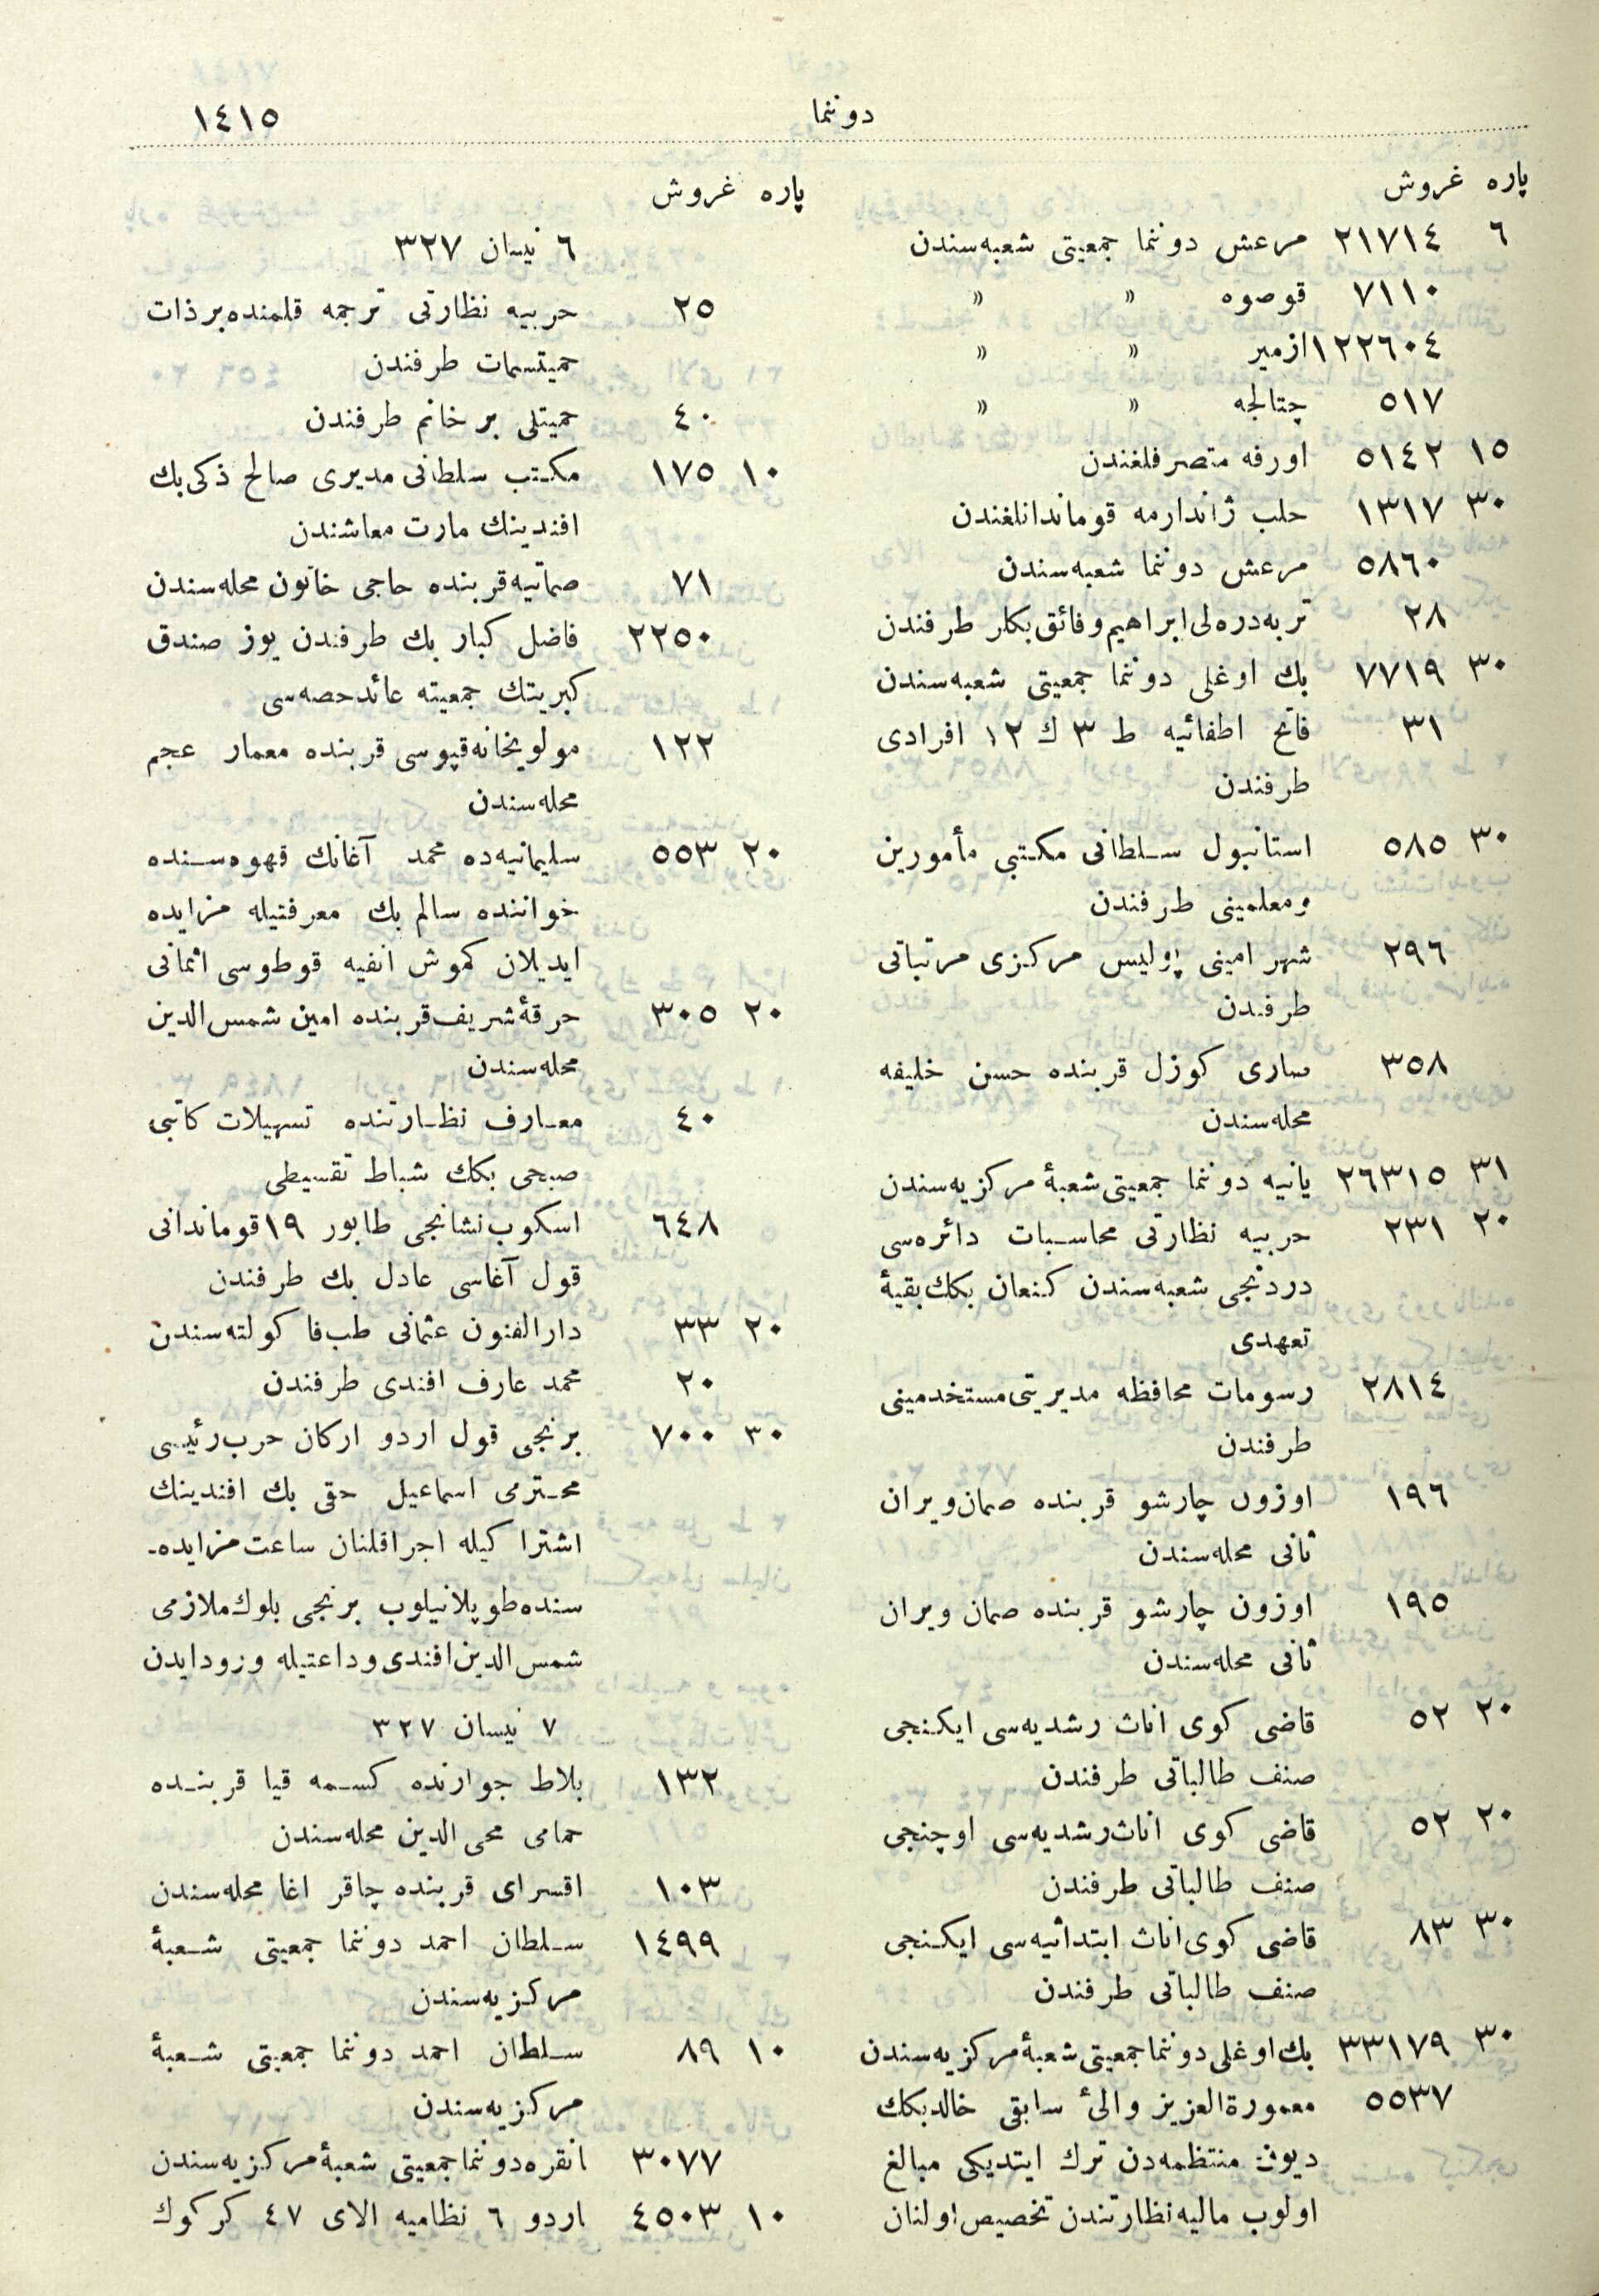 دوننما
١٤١٥
پاره غروش
٦ ٢١٧١٤ مرعش دوننما جمعیتی شعبه‌سندن
٧١١٠ قوصوه » »
١٢٢٦٠٤ ازمیر » »
٥١٧ چتالجه » »
١٥ ٥١٤٢ اورفه متصرفلغندن
٣٠ ١٣١٧ حلب ژاندارمه قوماندانلغندن
٥٨٦٠ مرعش دوننما شعبه‌سندن
٢٨ تربه‌دره‌لی ابراهیم وفائق بکلر طرفندن
٣٠ ٧٧١٩ بك اوغلی دوننما جمعیتی شعبه‌سندن
٣١ فاتح اطفائیه ط ٣ ك ١٢ افرادی
طرفندن
٣٠ ٥٨٥ استانبول سلطانی مکتبی مأمورین
ومعلمینی طرفندن
٢٩٦ شهر امینی پولیس مرکزی مرتباتی
طرفندن
٣٥٨ صاری کوزل قربنده حسن خلیفه
محله‌سندن
٣١ ٢٦٣١٥ یانیه دوننما جمعیتی شعبهٔ مرکزیه‌سندن
٢٠ ٢٣١ حربیه نظارتی محاسبات دائره‌سی
دردنجی شعبه‌سندن کنعان بكك بقیهٔ
تعهدی
٢٨١٤ رسومات محافظه مدیریتی مستخدمینی
طرفندن
١٩٦ اوزون چارشو قربنده صمان ویران
ثانی محله‌سندن
١٩٥ اوزون چارشو قربنده صمان ویران
ثانی محله‌سندن
٢٠ ٥٢ قاضی کوی اناث رشدیه‌سی ایکنجی
صنف طالباتی طرفندن
٢٠ ٥٢ قاضی کوی اناث رشدیه‌سی اوچنجی
صنف طالباتی طرفندن
٣٠ ٨٣ قاضی کوی اناث ابتدائیه‌سی ایکنجی
صنف طالباتی طرفندن
٣٠ ٣٣١٧٩ بك اوغلی دوننما جمعیتی شعبهٔ مرکزیه‌سندن
٥٥٣٧ معمورةالعزیز والیٔ سابقی خالد بكك
دیون منتظمه‌دن ترك ایتدیکی مبالغ
اولوب مالیه نظارتندن تخصیص اولنان
پاره غروش
٦ نیسان ٣٢٧
٢٥ حربیه نظارتی ترجمه قلمنده بر ذات
حمیتسمات طرفندن
٤٠ حمیتلی بر خانم طرفندن
١٠ ١٧٥ مکتب سلطانی مدیری صالح ذکی بك
افندینك مارت معاشندن
٧١ صماتیه قربنده حاجی خاتون محله‌سندن
٢٢٥٠ فاضل کبار بك طرفندن یوز صندق
کبریتك جمعیته عائد حصه‌سی
١٢٢ مولویخانه قپوسی قربنده معمار عجم
محله‌سندن
٢٠ ٥٥٣ سلیمانیه‌ده محمد آغانك قهوه‌سنده
خواننده سالم بك معرفتیله مزایده
ایدیلان کموش انفیه قوطوسی اثمانی
٢٠ ٣٠٥ حرقهٔ شریف قربنده امین شمس‌الدین
محله‌سندن
٤٠ معارف نظارتنده تسهیلات کاتبی
صبحی بكك شباط تقسیطی
٦٤٨ اسکوب نشانجی طابور ١٩ قوماندانی
قول آغاسی عادل بك طرفندن
٢٠ ٣٣ دارالفنون عثمانی طب فاکولته‌سندن
٢٠ محمد عارف افندی طرفندن
٣٠ ٧٠٠ برنجی قول اردو ارکان حرب رئیسی
محترمی اسماعیل حقی بك افندینك
اشتراکیله اجرا قلنان ساعت مزایده‌-
سنده طوپلانیلوب برنجی بلوك ملازمی
شمس الدین افندی وداعتیله ورود ایدن
٧ نیسان ٣٢٧
١٣٢ بلاط جوارنده کسمه قیا قربنده
حمامی محی الدین محله‌سندن
١٠٣ اقسرای قربنده چاقر اغا محله‌سندن
١٤٩٩ سلطان احمد دوننما جمعیتی شعبهٔ
مرکزیه‌سندن
١٠ ٨٩ سلطان احمد دوننما جمعیتی شعبهٔ
مرکزیه‌سندن
٣٠٧٧ انقره دوننما جمعیتی شعبهٔ مرکزیه‌سندن
١٠ ٤٥٠٣ اردو ٦ نظامیه الای ٤٧ کرکوك